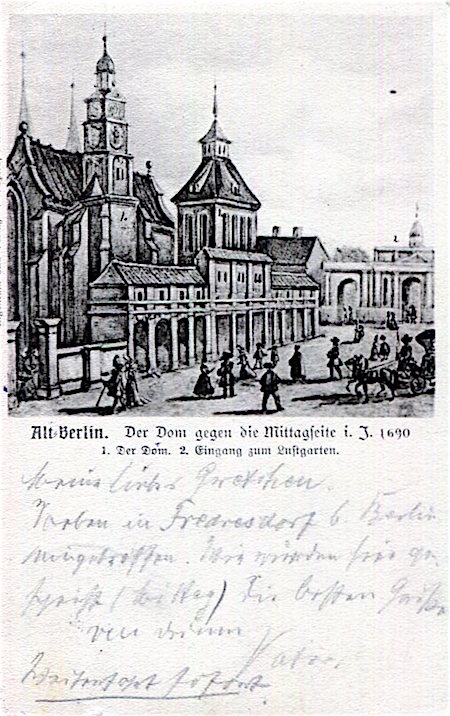 Alt-Berlin. Der Dom gegen die Mittagseite i. J. 1690
1. Der Dom. 2. Eingang zum Lustgarten.
Meine liebe Gretchen.
Soeben in Fredersdorf b. Berlin
eingetroffen. Wir wurden hier ge
speist (Mittag) Die besten Grüße
von deinem
Vater.
Weiterfahrt sofort